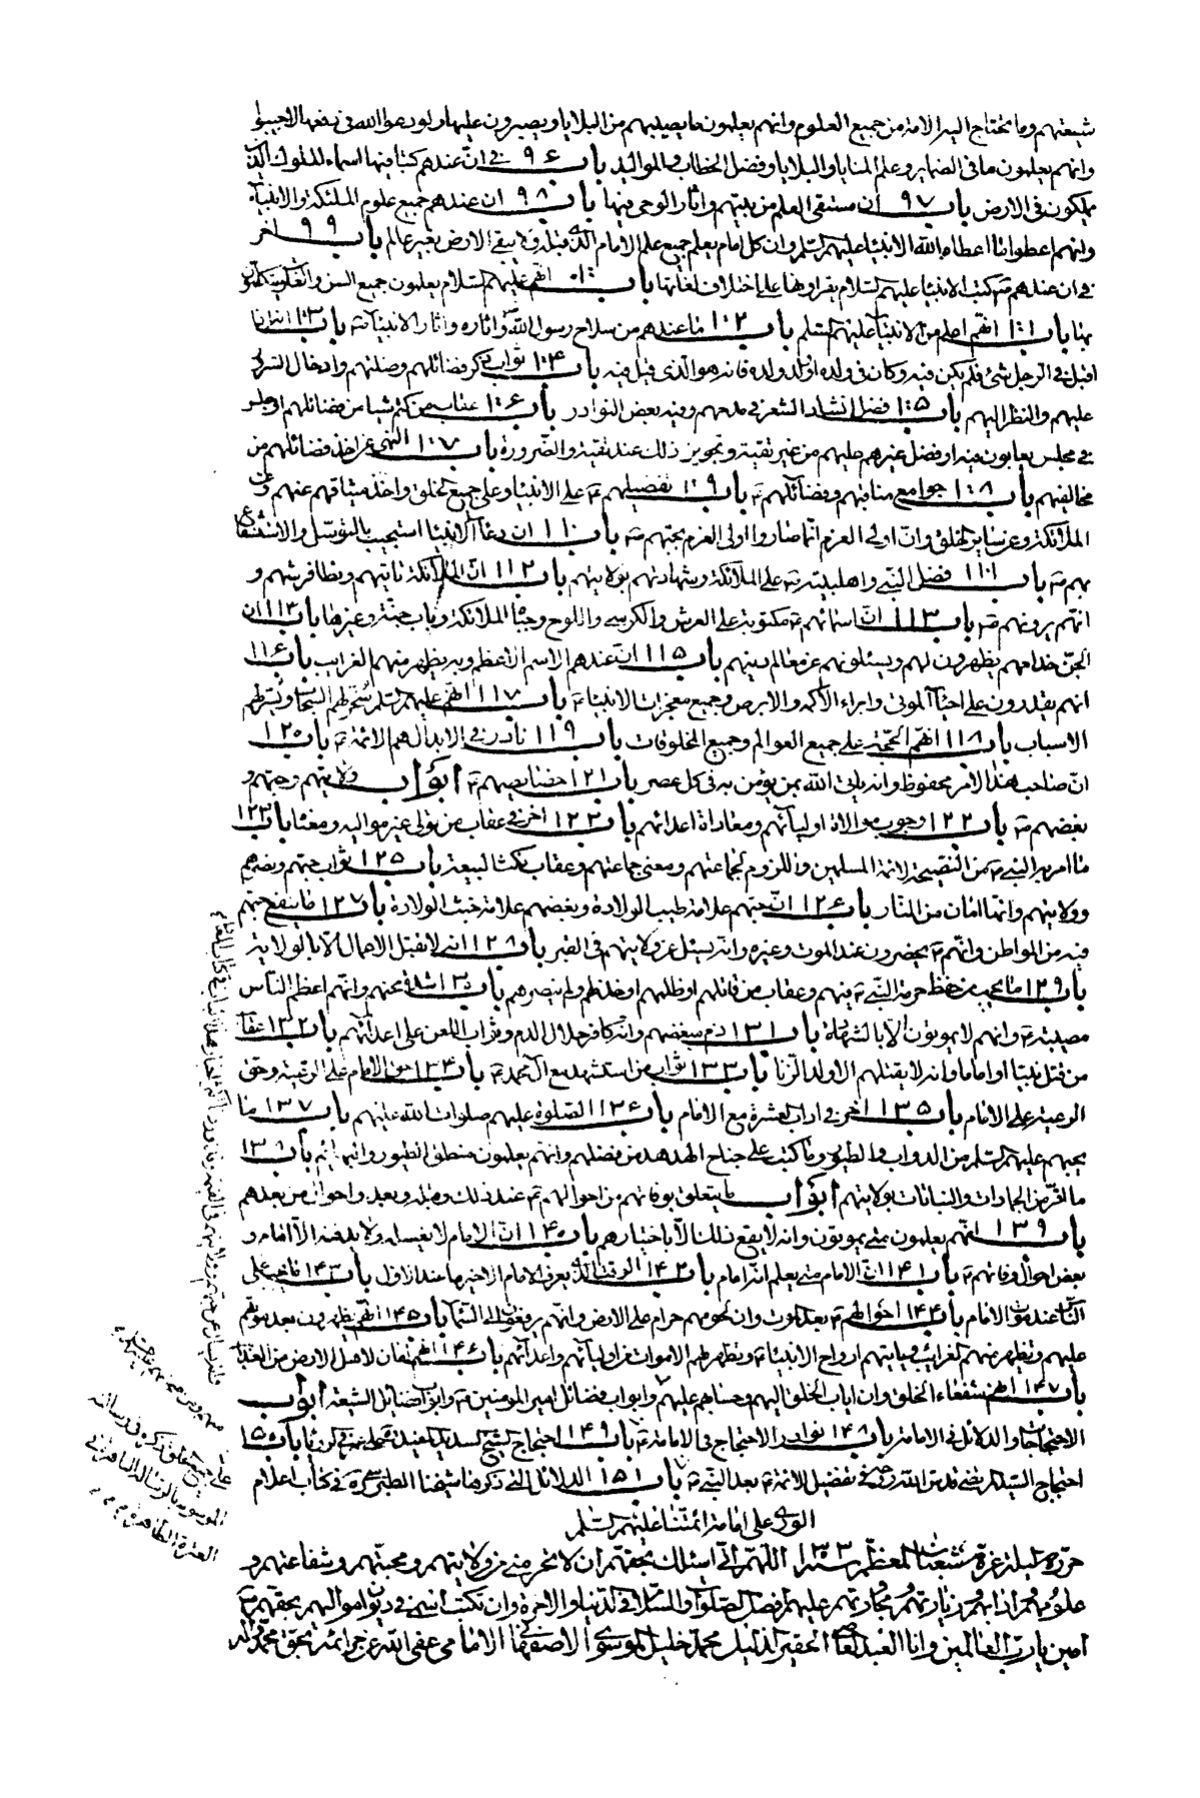 شيعتهم وما يحتاج اليه الامة من جميع العلوم وانهم يعلمون ما يصيبهم من البلايا ويصبرون عليها ولو دعوا الله فى دفعها لاجيبوا
وانهم يعلمون ما فى الضماير وعلم المنايا والبلايا وفصل الخطاب والمواليد باب ٩۶ فى انّ عندهم كتبا فيها اسماء الملوك الذين
يملكون فى الارض باب ٩٧ ان مستقى العلم من بيتهم واثار الوحى فيها باب ٩٨ ان عندهم جميع علوم الملئكة والانبياء
وانهم اعطوا ما اعطاه الله الانبياء عليهم السلم وان كل امام يعلم جميع علم الامام الذى قبله ولا يبقى الارض بغير عالم باب ٩٩ اخر
فى ان عندهم كتب الانبياء عليهم السلام يقراونها على اختلاف لغاتها باب ١٠٠ انهم عليهم السلام يعلمون جميع السن واللغات ويتكلمون
بها باب ١٠١ انهم اعلم من الانبياء عليهم السلم باب ١٠٢ ما عندهم من سلاح رسول الله واثاره واثار الانبياء باب ١٠٣ انه اذا
اقيل فى الرجل شئ فلم يكن فيه وكان فى ولده او ولد ولده فانه هو الذى قيل فيه باب ١٠۴ ثواب ذكر فضائلهم وصلتهم وادخال السرور
عليهم والنظر اليهم باب ١٠۵ فضل انشاد الشعر فى مدحهم وفيه بعض النوادر باب ١٠۶ عقاب من كتم شيئا من فضائلهم او جلس
فى مجلس يعابون فيه او فضل غيرهم عليهم من غير تقية وتجويز ذلك عند تقية والضرورة باب ١٠٧ النهى عن اخذ فضائلهم من
مخالفيهم باب ١٠٨ جوامع مناقبهم وفضائلهم باب ١٠٩ تفضيلهم على الانبياء وعلى جميع الخلق واخذ ميثاقهم عنهم وعن
الملائكة وعن سائر الخلق وانّ اولى العزم انما صاروا اولى العزم بحبهم باب ١١٠ ان دعاء الانبياء استجيب بالتوسل والاستشفاع
بهم باب ١١١ فضل النبى واهل بيته على الملائكة وشهادتهم بولايتهم باب ١١٢ انّ الملائكة تاتيهم وتطا فرشهم و
انهم يرونهم باب ١١٣ انّ اسمائهم مكتوبة على العرش والكرسى واللوح وجباه الملائكة وباب الجنة وغيرها باب ١١۴ ان
الجن خدامهم يظهرون لهم ويسئلونهم عن معالم دينهم باب ١١۵ ان عندهم الاسم الاعظم وبه يظهر منهم الغرايب باب ١١۶
انهم يقدرون على احياء الموتى وابراء الاكمه والابرص وجميع معجزات الانبياء باب ١١٧ انهم عليهم السلم سخر لهم السحاب ويسر لهم
الاسباب باب ١١٨ انهم الحجة على جميع العوالم وجميع المخلوقات باب ١١٩ نادر فى الابدال هم الائمة باب ١٢٠
انّ صاحب هذا الامر محفوظ وانه ياتى الله بمن يؤمن به فى كل عصر باب ١٢١ خصايصهم ابواب ولايتهم وحبهم و
بغضهم باب ١٢٢ وجوب موالاة اوليائهم ومعاداة اعدائهم باب ١٢٣ اخر فى عقاب من تولى غير مواليه ومعناه باب ١٢۴
ما امر به النبى من النصيحة لائمة المسلمين واللزوم لجماعتهم ومعنى جماعتهم وعقاب نكث البيعة باب ١٢۵ ثواب حبهم ونصرهم
وولايتهم وانها امان من النار باب ١٢۶ انّ حبهم علامة طيب الولادة وبغضهم علامة خبث الولادة باب ١٢٧ ما ينفع حبهم
فيه من المواطن وانهم يحضرون عند الموت وغيره وانه يسئل عن ولايتهم فى القبر باب ١٢٨ انه لا تقبل الاعمال الا بالولاية
باب ١٢٩ ما يجب من حفظ حرمة النبى فيهم وعقاب من قاتلهم او ظلمهم او خذلهم ولم ينصرهم باب ١٣٠ شدة محنهم وانهم اعظم الناس
مصيبة وانهم لا يموتون الا بالشهادة باب ١٣١ ذم مبغضهم وانه كافر حلال الدم وثواب اللعن على اعدائهم باب ١٣٢ عقاب
من قتل نبيا او اماما وانه لا يقتلهم الا ولد الزنا باب ١٣٣ ثواب من استشهد مع آل محمد باب ١٣۴ حق الامام على الرعية وحق
الرعية على الامام باب ١٣۵ اخر فى اداب العشرة مع الامام باب ١٣۶ الصلوة عليهم صلوات الله عليهم باب ١٣٧ ما
يحبهم عليهم السلم من الدواب والطيور وما كتب على جناح الهدهد من فضلهم وانهم يعلمون منطق الطيور والبهائم باب ١٣٨
ما اقر من الجمادات والنباتات بولايتهم ابواب ما يتعلق بوفاتهم من احوالهم عند ذلك وقبله وبعده واحوال من بعدهم
باب ١٣٩ انهم يعلمون متى يموتون وانه لا يقع ذلك الا باختيارهم باب ١۴٠ انّ الامام لا يغسله ولا يدفنه الا امام و
بعض احوال وفاتهم باب ١۴١ انّ الامام متى يعلم انه امام باب ١۴٢ الوقت الذى يعرف الامام الاخير ما عند الاول باب ١۴٣ ما يجب على
الناس عند موت الامام باب ١۴۴ احوالهم بعد الموت وان لحومهم حرام على الارض وانهم يرفعون الى السماء باب ١۴۵ انهم يظهرون بعد موتهم
عليهم ويظهر منهم الغرائب وياتيهم ارواح الانبياء وتظهر لهم الاموات من اوليائهم واعدائهم باب ١۴۶ انهم امان لاهل الارض من العذاب
باب ١۴٧ انهم شفعاء الخلق وان اياب الخلق اليهم وحسابهم عليهم وابواب فضائل امير المؤمنين وابواب فضائل الشيعة ابواب
الاحتجاجات والدلائل فى الامامة باب ١۴٨ نوادر الاحتجاج فى الامامة باب ١۴٩ احتجاج الشيخ السديد المفيد باب ١۵٠
احتجاج السيد المرتضى قدس الله روحه فى تفضيل الائمة بعد النبى باب ١۵١ الدلائل التى ذكرها شيخنا الطبرسى فى كتاب اعلام
الورى على امامة ائمتنا عليهم السلم
حرره ليلة غرة شعبان المعظم اللهم انى اسئلك بحقهم ان لا تحرمنى من ولايتهم ومحبتهم وشفاعتهم و
علومهم وادابهم وزيارتهم ومجاورتهم عليهم افضل الصلوات والسلام فى الدنيا والاخرة وان تكتب اسمى فى ديوان مواليهم بحقهم
امين يا رب العالمين وانا العبد العاصى الحقير الذليل محمد خليل الموسوى الاصفهانى الامامى عفى الله عن جرائمه بحق محمد واله
على جميع الخلق ذكره فى رسالته
الموسومة بالرسالة الباهرة فى
العترة الطاهرة